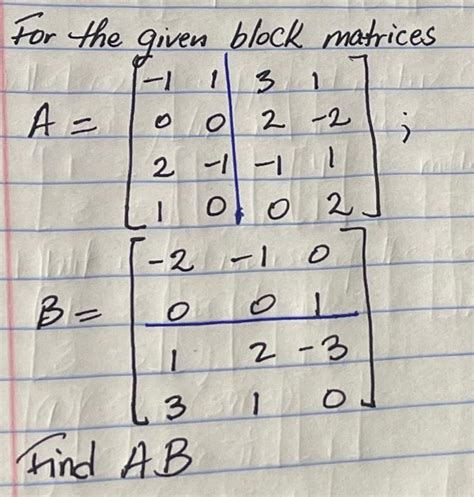 For the given block matrices
-1 1 3 1
A = 0 0 2 -2 ;
2 -1 -1 1
1 0 0 2
-2 -1 0
B = 0 0 1
1 2 -3
3 1 0
Find AB